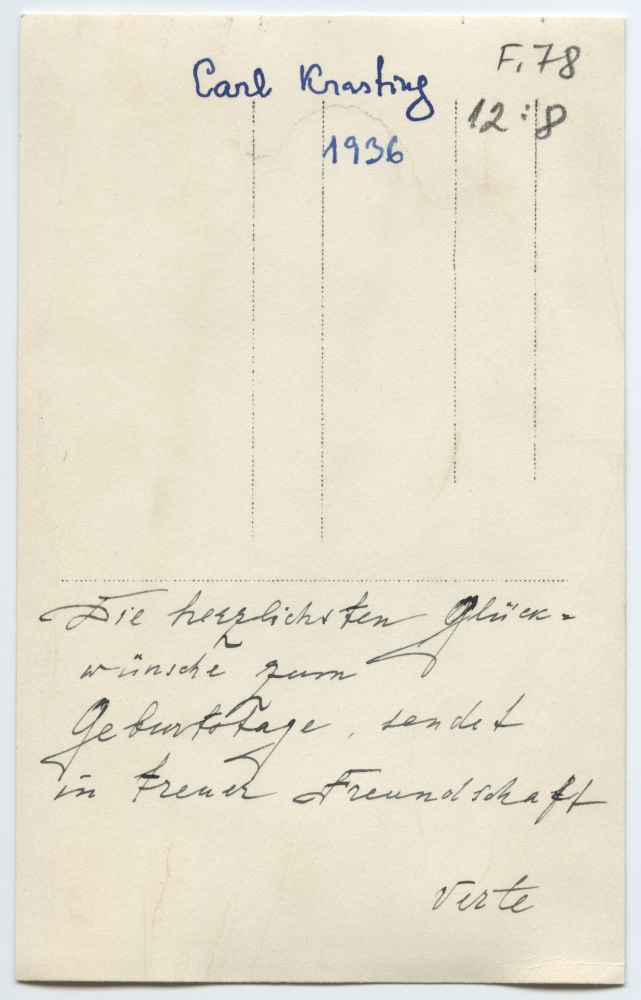 Carl Krasting
F. 78
12:8
1936
Die herzlichsten Glück=
wünsche zum
Geburtstage, sendet
in treuer Freundschaft
Verte